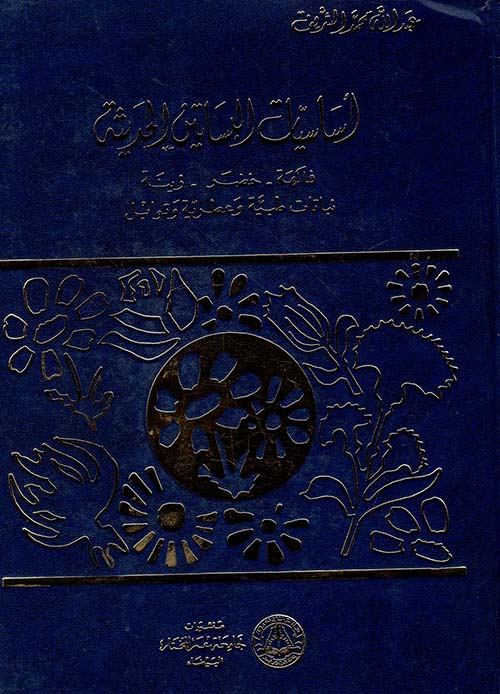 عبد الله محمد الشريف
أساسيات البساتين الحديثة
فاكهة - خضر - زينة
نباتات طبية وعطرية وتوابل
منشورات
جامعة عمر المختار
البيضاء